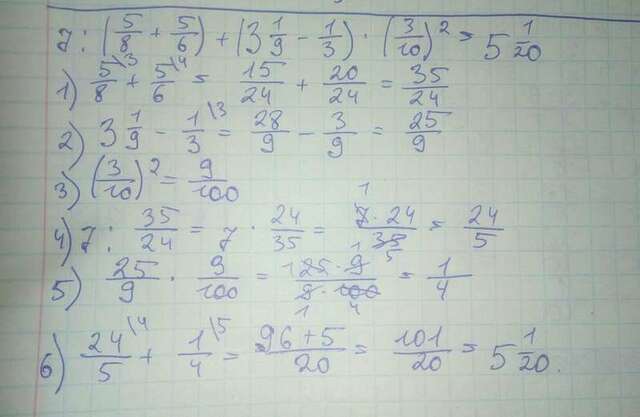 7 : (5/8 + 5/6) + (3 1/9 - 1/3) · (3/10)² = 5 1/20
1) 5/8 \3 + 5/6 \4 = 15/24 + 20/24 = 35/24
2) 3 1/9 - 1/3 \3 = 28/9 - 3/9 = 25/9
3) (3/10)² = 9/100
4) 7 : 35/24 = 7 · 24/35 = 7 · 24/35 = 24/5
5) 25/9 · 9/100 = 25 · 9/9 · 100 = 1/4
6) 24/5 \4 + 1/4 \5 = 96 + 5/20 = 101/20 = 5 1/20.